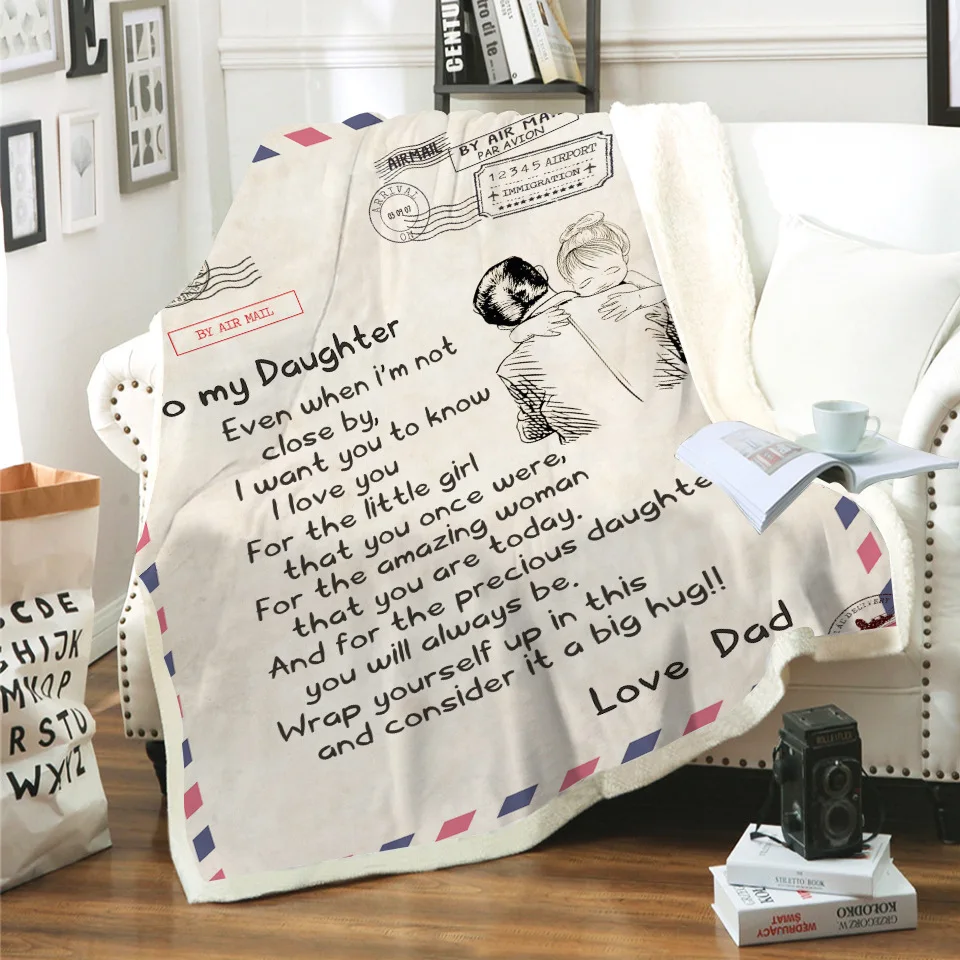 E
CENTU
tro di te
AIRMAIL
BY AIR MA
PAR AVION
12345 AIRPORT
IMMIGRATION
ARRIVAL
BY AIR MAIL
o my Daughter
Even when i'm not
close by,
I want you to know
I love you
For the little girl
that you once were,
For the amazing woman
that you are today.
And for the precious daughte
you will always be.
Wrap yourself up in this
and consider it a big hug!!
Love Dad
AL DELIVERY
CDE
GHIJK
MNOP
RSTU
WXYZ
STILETTO BOOK
GRZEGORZ W.
KOŁODKO
WĘDRUJĄCY
ŚWIAT